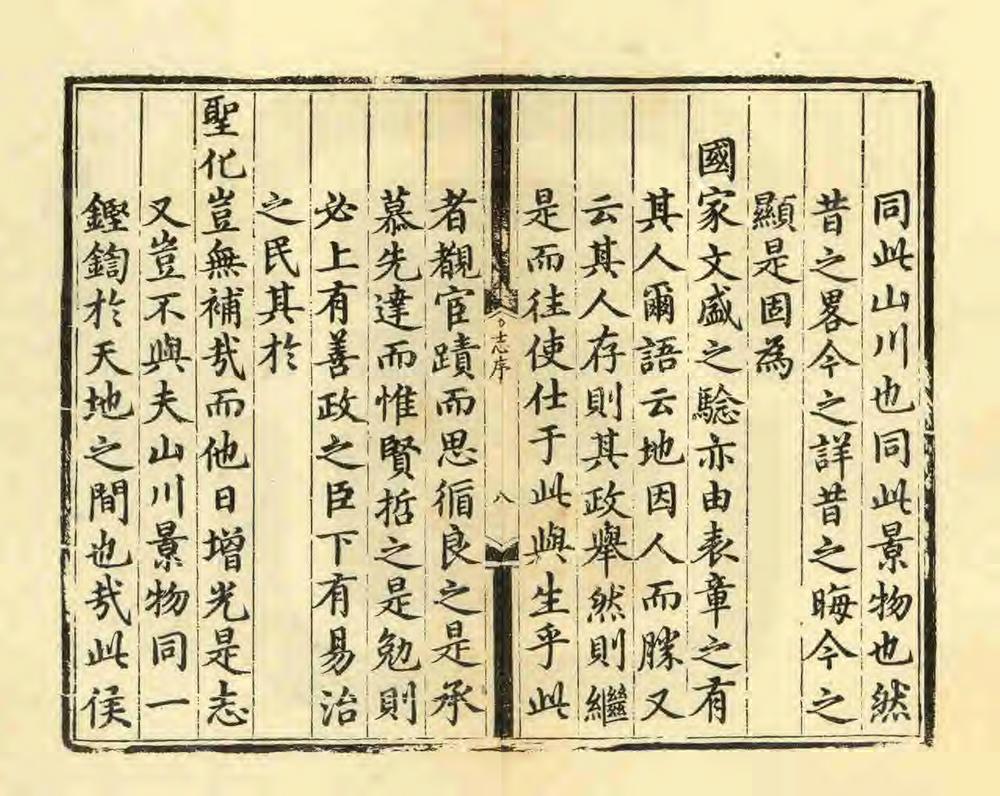 同此山川也同此景物也然
昔之畧今之詳昔之晦今之
顯是固為
國家文盛之驗亦由表章之有
其人爾語云地因人而勝又
云其人存則其政舉然則繼
是而往使仕于此與生乎此
志序
八
者觀宦蹟而思循良之是承
慕先達而惟賢哲之是勉則
必上有善政之臣下有易治
之民其於
聖化豈無補哉而他日增光是志
又豈不與夫山川景物同一
鏗鍧於天地之間也哉此侯